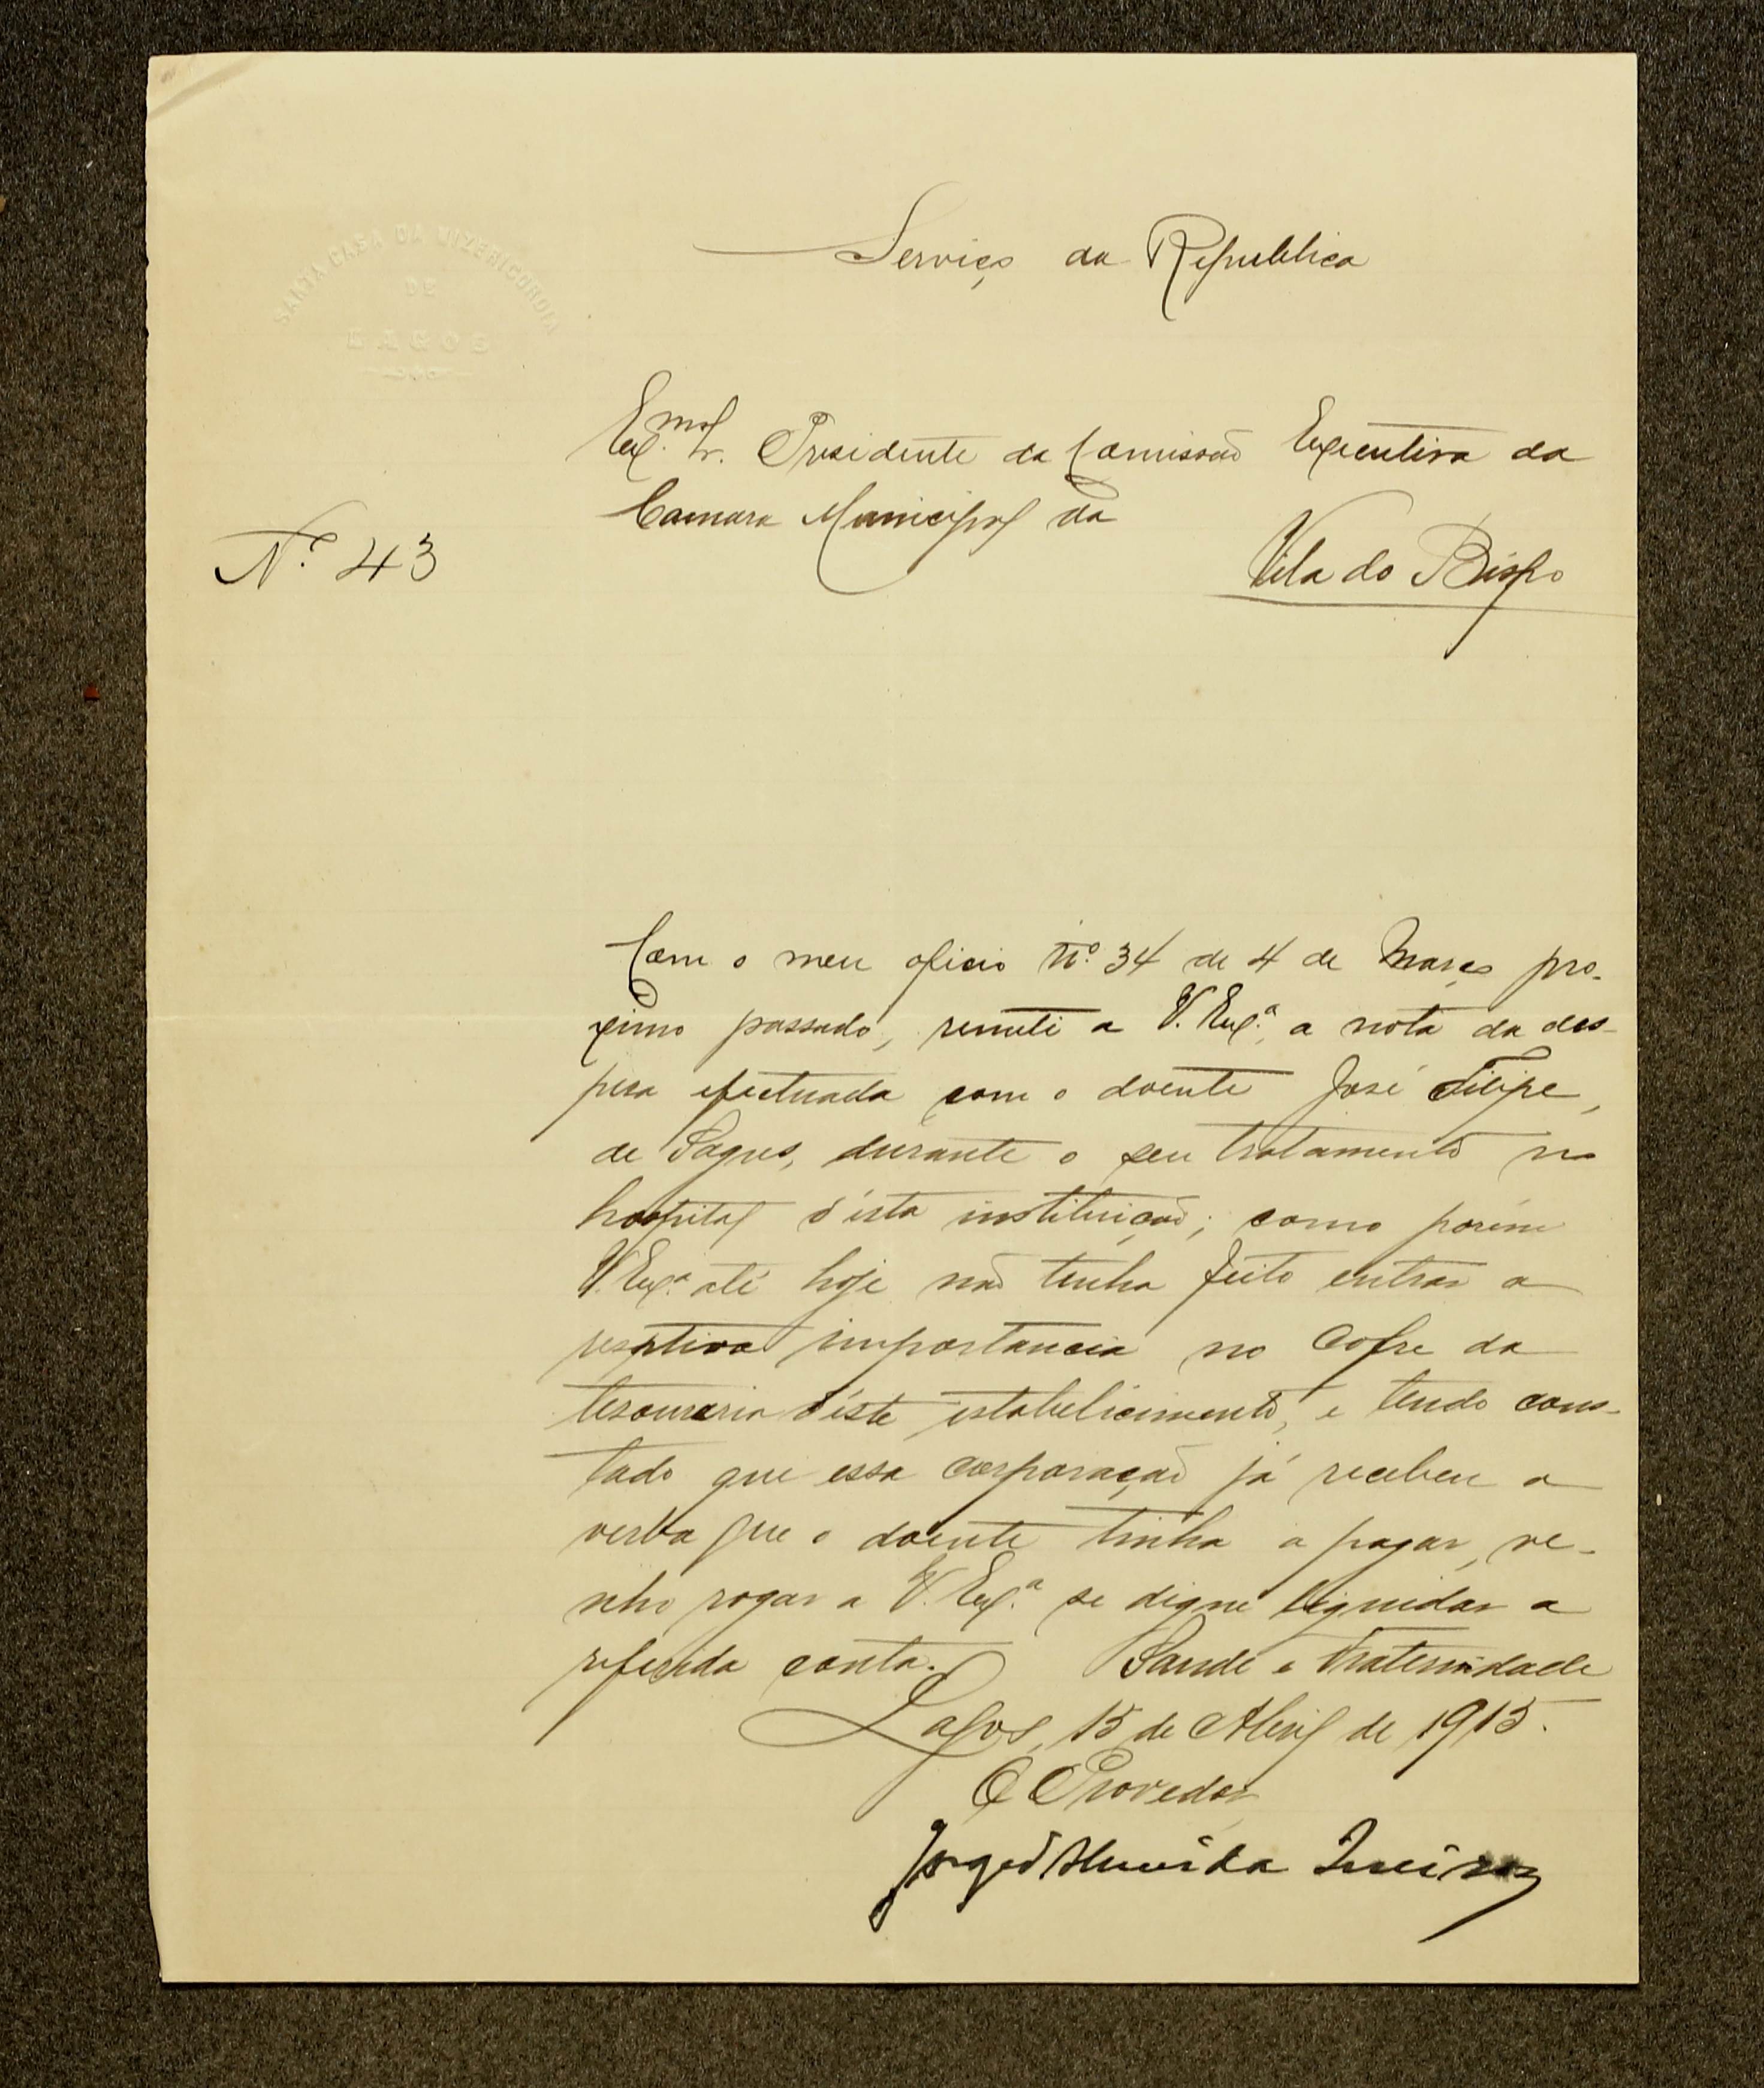 SANTA CASA DA MIZERICORDIA
DE
LAGOS
Serviço da Republica
Exmo. Sr. Presidente da Comissão Executiva da
Camara Municipal da
Vila do Bispo
N.º 43
Com o meu oficio n.º 34 de 4 de Março pro-
ximo passado, remeti a V. Exª. a nota da des-
peza efectuada com o doente José Filipe,
de Sagres, durante o seu tratamento no
hospital d'esta instituição; como porém
V. Exª. até hoje não tenha feito entrar a
respétiva importancia no cofre da
tesouraria d'éste estabelicimento, e tendo cons-
tado que essa corporação já recebeu a
verba que o doente tinha a pagar, ve-
nho rogar a V. Exª. se digne liquidar a
referida conta. Saude e Fraternidade
Lagos, 15 de Abril de 1915.
O Provedor
Jorge d'Almeida